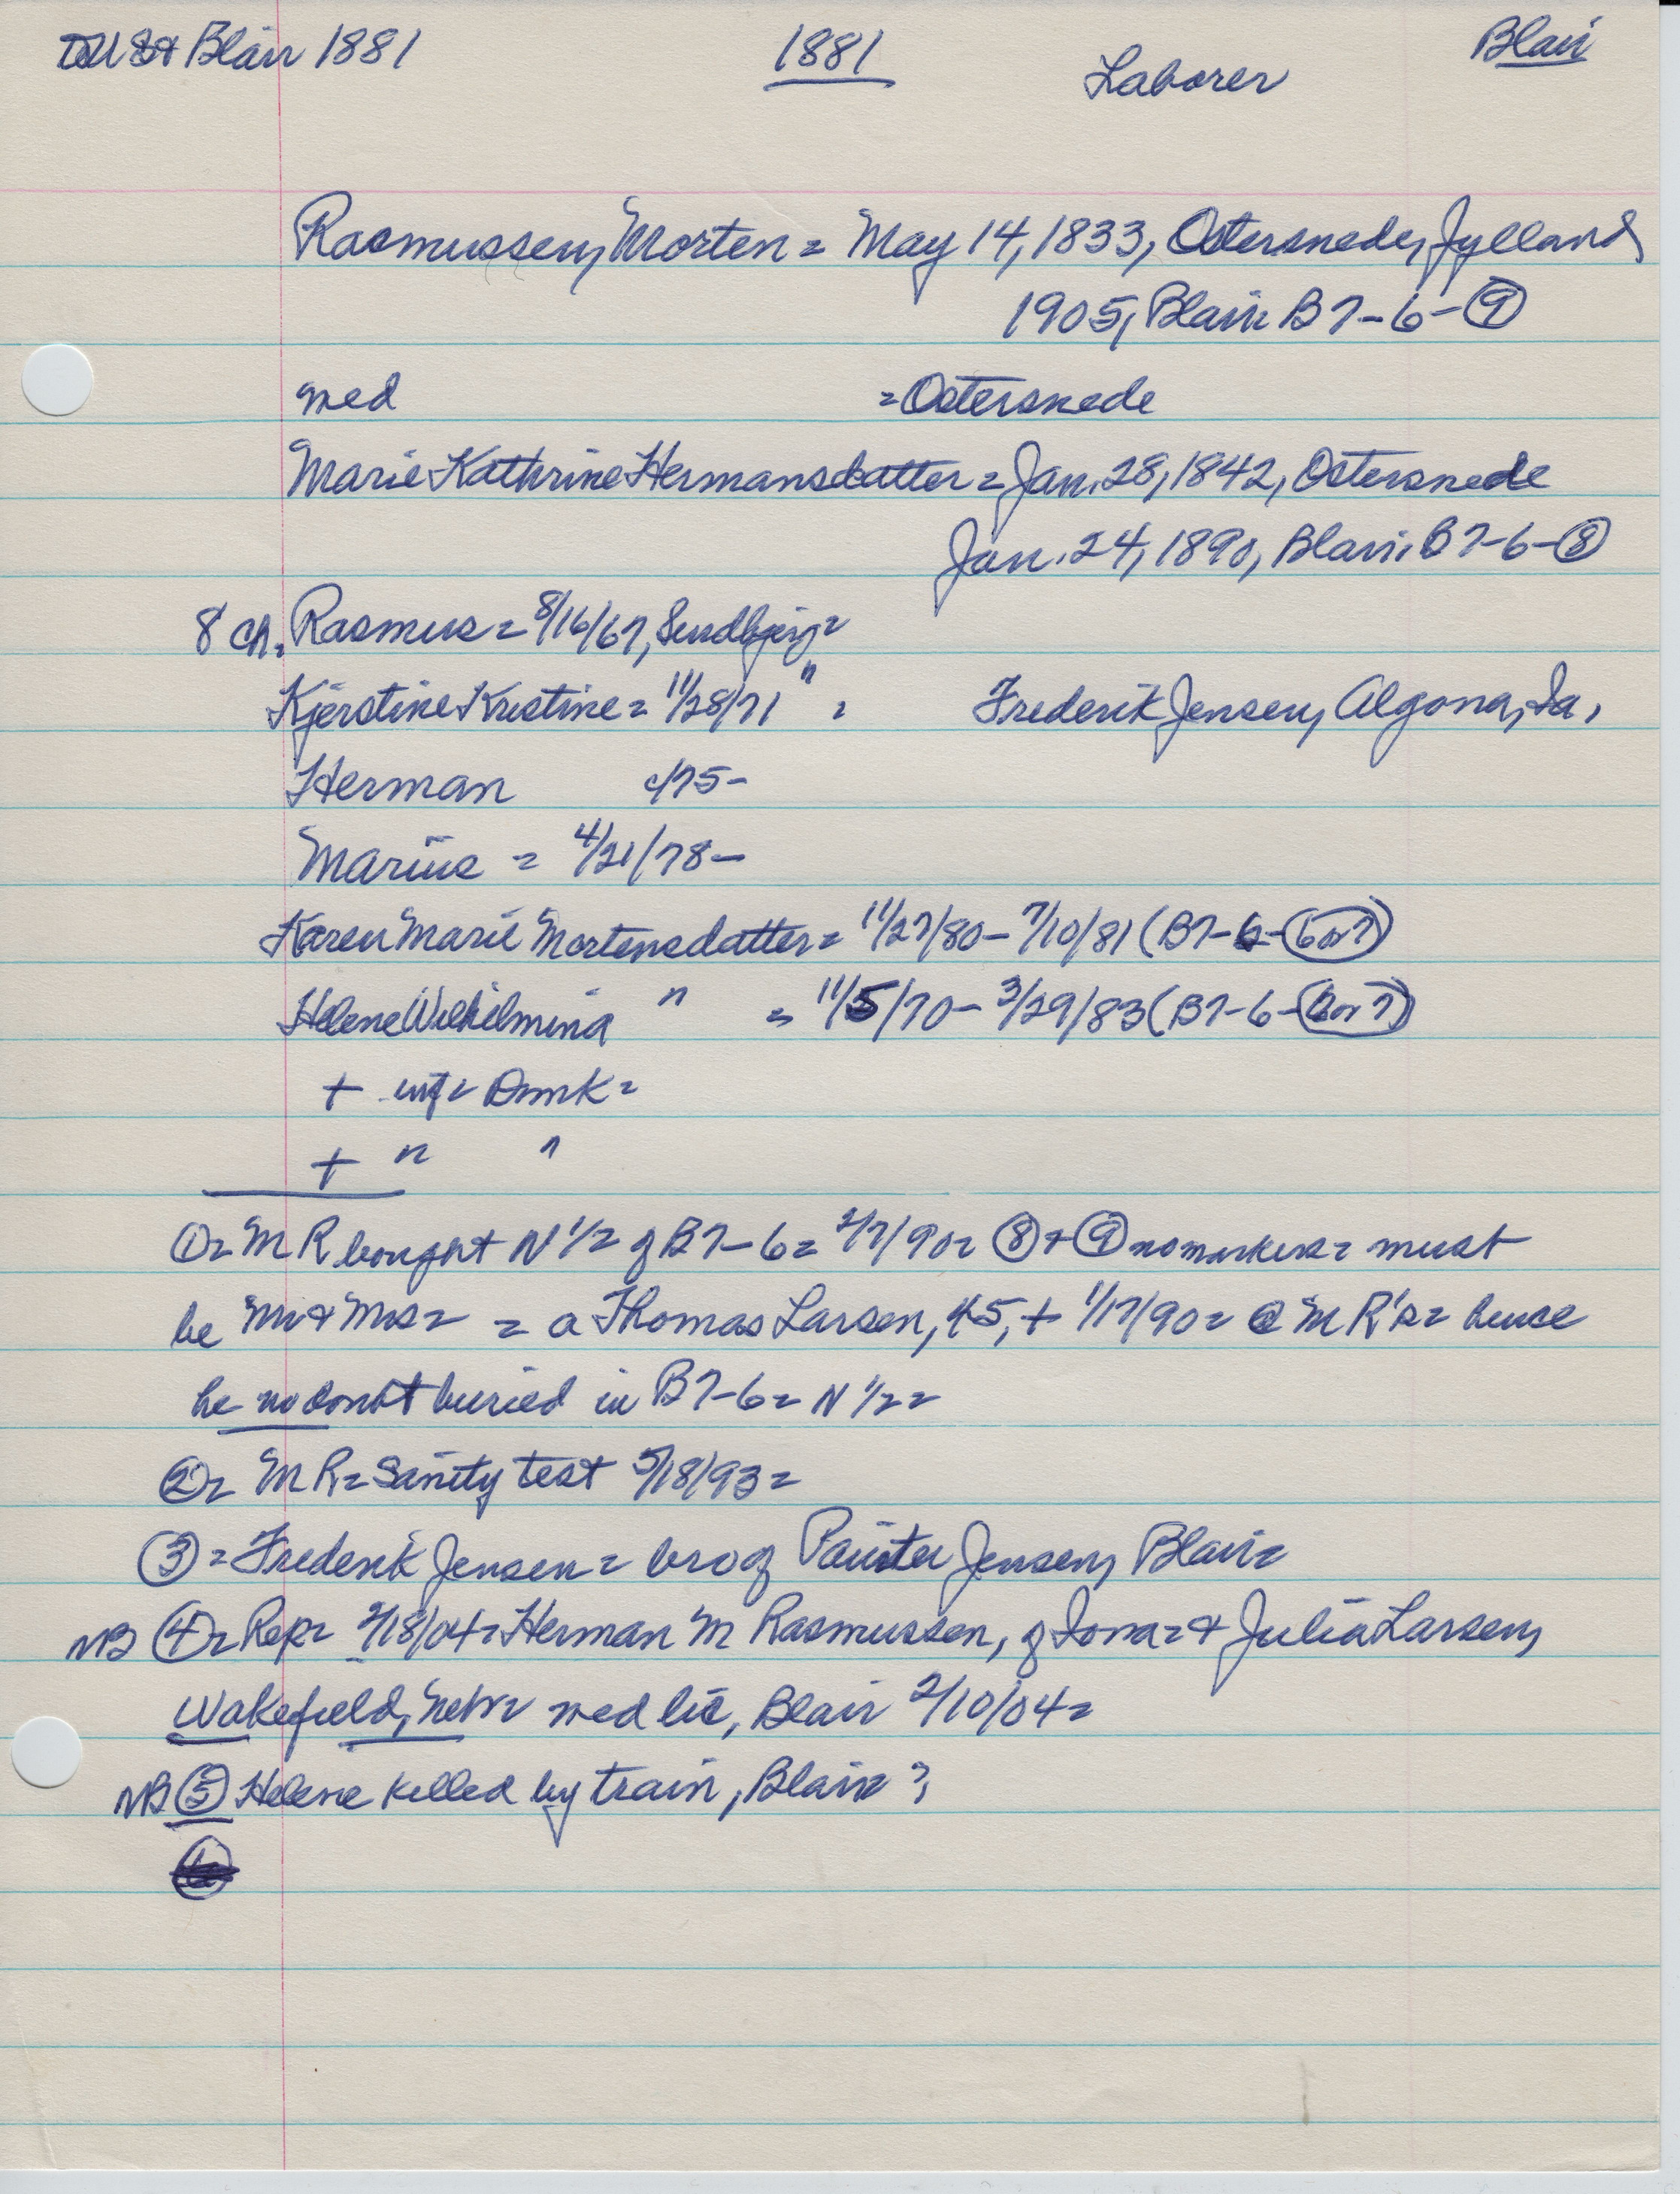 Blair 1881 1881 Laborer Blair
Rasmussen, Morten = May 14, 1833, Ostersnede, Jylland
1905, Blair B7-6-⑨
med = Ostersnede
Marie Kathrine Hermansdatter = Jan. 28, 1842, Ostersnede
Jan. 24, 1890, Blair, B7-6-⑧
8 ch. Rasmus = 8/16/67, Sundbjerg =
Kjerstine Kristine = 11/28/71 " = Frederik Jensen, Algona, Ia,
Herman c/75-
Marius = 4/21/78-
Karen Marie Mortensdatter = 11/27/80 - 7/10/81 (B7-6-(6 or 7)
Helene Wilhilmina " = 11/5/70 - 3/29/83 (B7-6-(6 or 7)
+ inf = Dmk =
+ " "
①= MR bought N 1/2 of B7-6 = 2/7/90 = ⑧ + ⑨ no markers = must
be Mr & Mrs = = a Thomas Larsen, 45, + 1/17/90 = @ MR's = hence
he no doubt buried in B7-6 = N 1/2 =
②= MR = Sanity test 5/18/93 =
③ = Frederik Jensen = bro of Painter Jensen, Blair =
NB ④= Rep = 2/18/04 = Herman M Rasmussen, of Iowa = & Julia Larsen,
Wakefield, Nebr = med lic, Blair 2/10/04 =
NB ⑤ Helene killed by train, Blair ?,